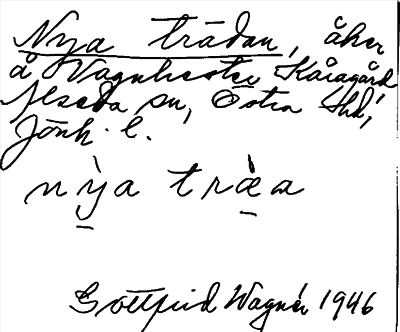 Nya trädan, åker
å Vagnhester Kåragård
Alseda sn, Östra Hd,
Jönk. l.
nỳa træ̀a
Gottfrid Wagnér 1946